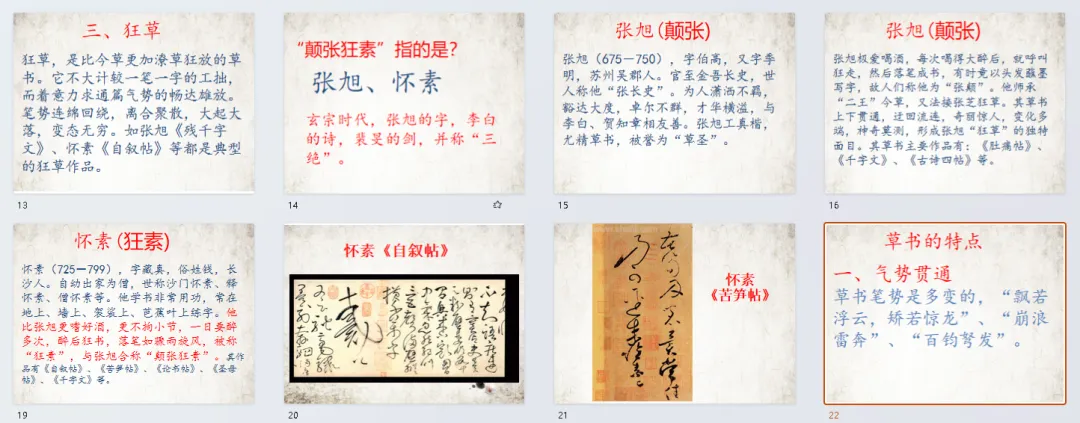 三、狂草
狂草，是比今草更加潦草狂放的草
书。它不大计较一笔一字的工拙，
而着意力求通篇气势的畅达雄放。
笔势连绵回绕，离合聚散，大起大
落，变态无穷。如张旭《残千字
文》、怀素《自叙帖》等都是典型
的狂草作品。
13
“颠张狂素”指的是？
张旭、怀素
玄宗时代，张旭的字，李白
的诗，裴旻的剑，并称“三
绝”。
14
张旭(颠张)
张旭（675－750），字伯高，又字季
明，苏州吴郡人。官至金吾长史，世
人称他“张长史”。为人潇洒不羁，
豁达大度，卓尔不群，才华横溢，与
李白、贺知章相友善。张旭工真楷，
尤精草书，被誉为“草圣”。
15
张旭(颠张)
张旭极爱喝酒，每次喝得大醉后，就呼叫
狂走，然后落笔成书，有时竟以头发蘸墨
写字，故人们称他为“张颠”。他师承
“二王”今草，又法接张芝狂草。其草书
上下贯通，迂回流连，奇丽惊人，变化多
端，神奇莫测，形成张旭“狂草”的独特
面目。其草书主要作品有：《肚痛帖》、
《千字文》、《古诗四帖》等。
16
怀素(狂素)
怀素（725－799），字藏真，俗姓钱，长
沙人。自动出家为僧，世称沙门怀素、释
怀素、僧怀素等。他学书非常用功，常在
地上、墙上、袈裟上、芭蕉叶上练字。他
比张旭更嗜好酒，更不拘小节，一日要醉
多次，醉后狂书，落笔如骤雨旋风，被称
“狂素”，与张旭合称“颠张狂素”。其作
品有《自叙帖》、《苦笋帖》、《论书帖》、《圣母
帖》、《千字文》等。
19
怀素《自叙帖》
20
怀素
《苦笋帖》
21
草书的特点
一、气势贯通
草书笔势是多变的，“飘若
浮云，矫若惊龙”、“崩浪
雷奔”、“百钧弩发”。
22